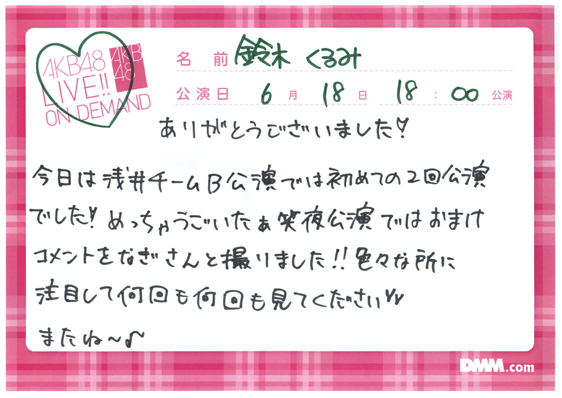 AKB48
LIVE!!
ON DEMAND
AKB
48
名前 鈴木 くるみ
公演日 6月18日 18:00公演
ありがとうございました♡
今日は浅井チームB公演では初めての2回公演
でした♡めっちゃうごいたぁ笑夜公演ではおまけ
コメントをなぎさんと撮りました!!色々な所に
注目して何回も何回も見てください♡♡
またね〜♪
DMM.com